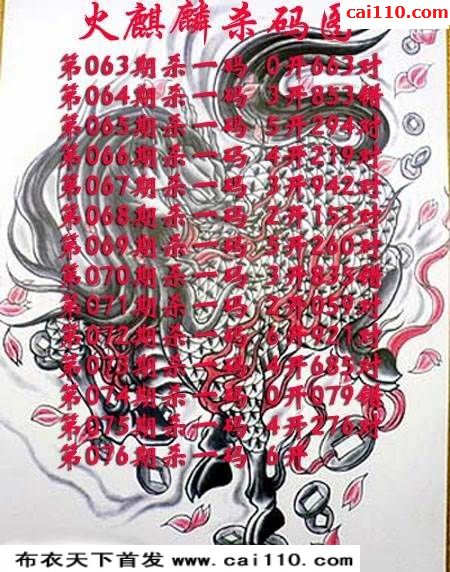 cai110.com
火麒麟杀码图
第063期杀一码 0开663对
第064期杀一码 3开853错
第065期杀一码 5开294对
第066期杀一码 4开219对
第067期杀一码 3开942对
第068期杀一码 2开153对
第069期杀一码 5开260对
第070期杀一码 3开835错
第071期杀一码 2开059对
第072期杀一码 6开921对
第073期杀一码 4开685对
第074期杀一码 0开079错
第075期杀一码 4开276对
第076期杀一码 6开
布衣天下首发 www.cai110.com